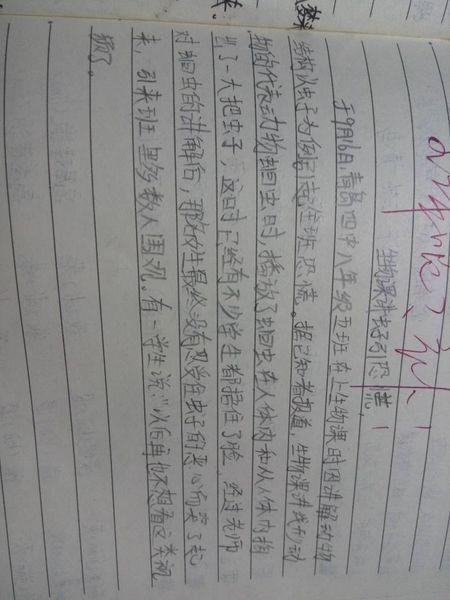 生物课讲虫子引恐慌
于9月16日,青岛四中八年级五班在上生物课时因讲解动物
结构以虫子为例引起全班恐慌。据已知者报道,生物课讲线形动
物的代表动物蛔虫时,播放了蛔虫在人体内和从人体内掏
出了一大把虫子,这时已经有不少学生都捂住了脸,经过老师
对蛔虫的讲解后,那名女生最终没有忍受住虫子的恶心而哭了起
来,引来班里多数人围观。有一学生说:“以后再也不想看这类视
频了。